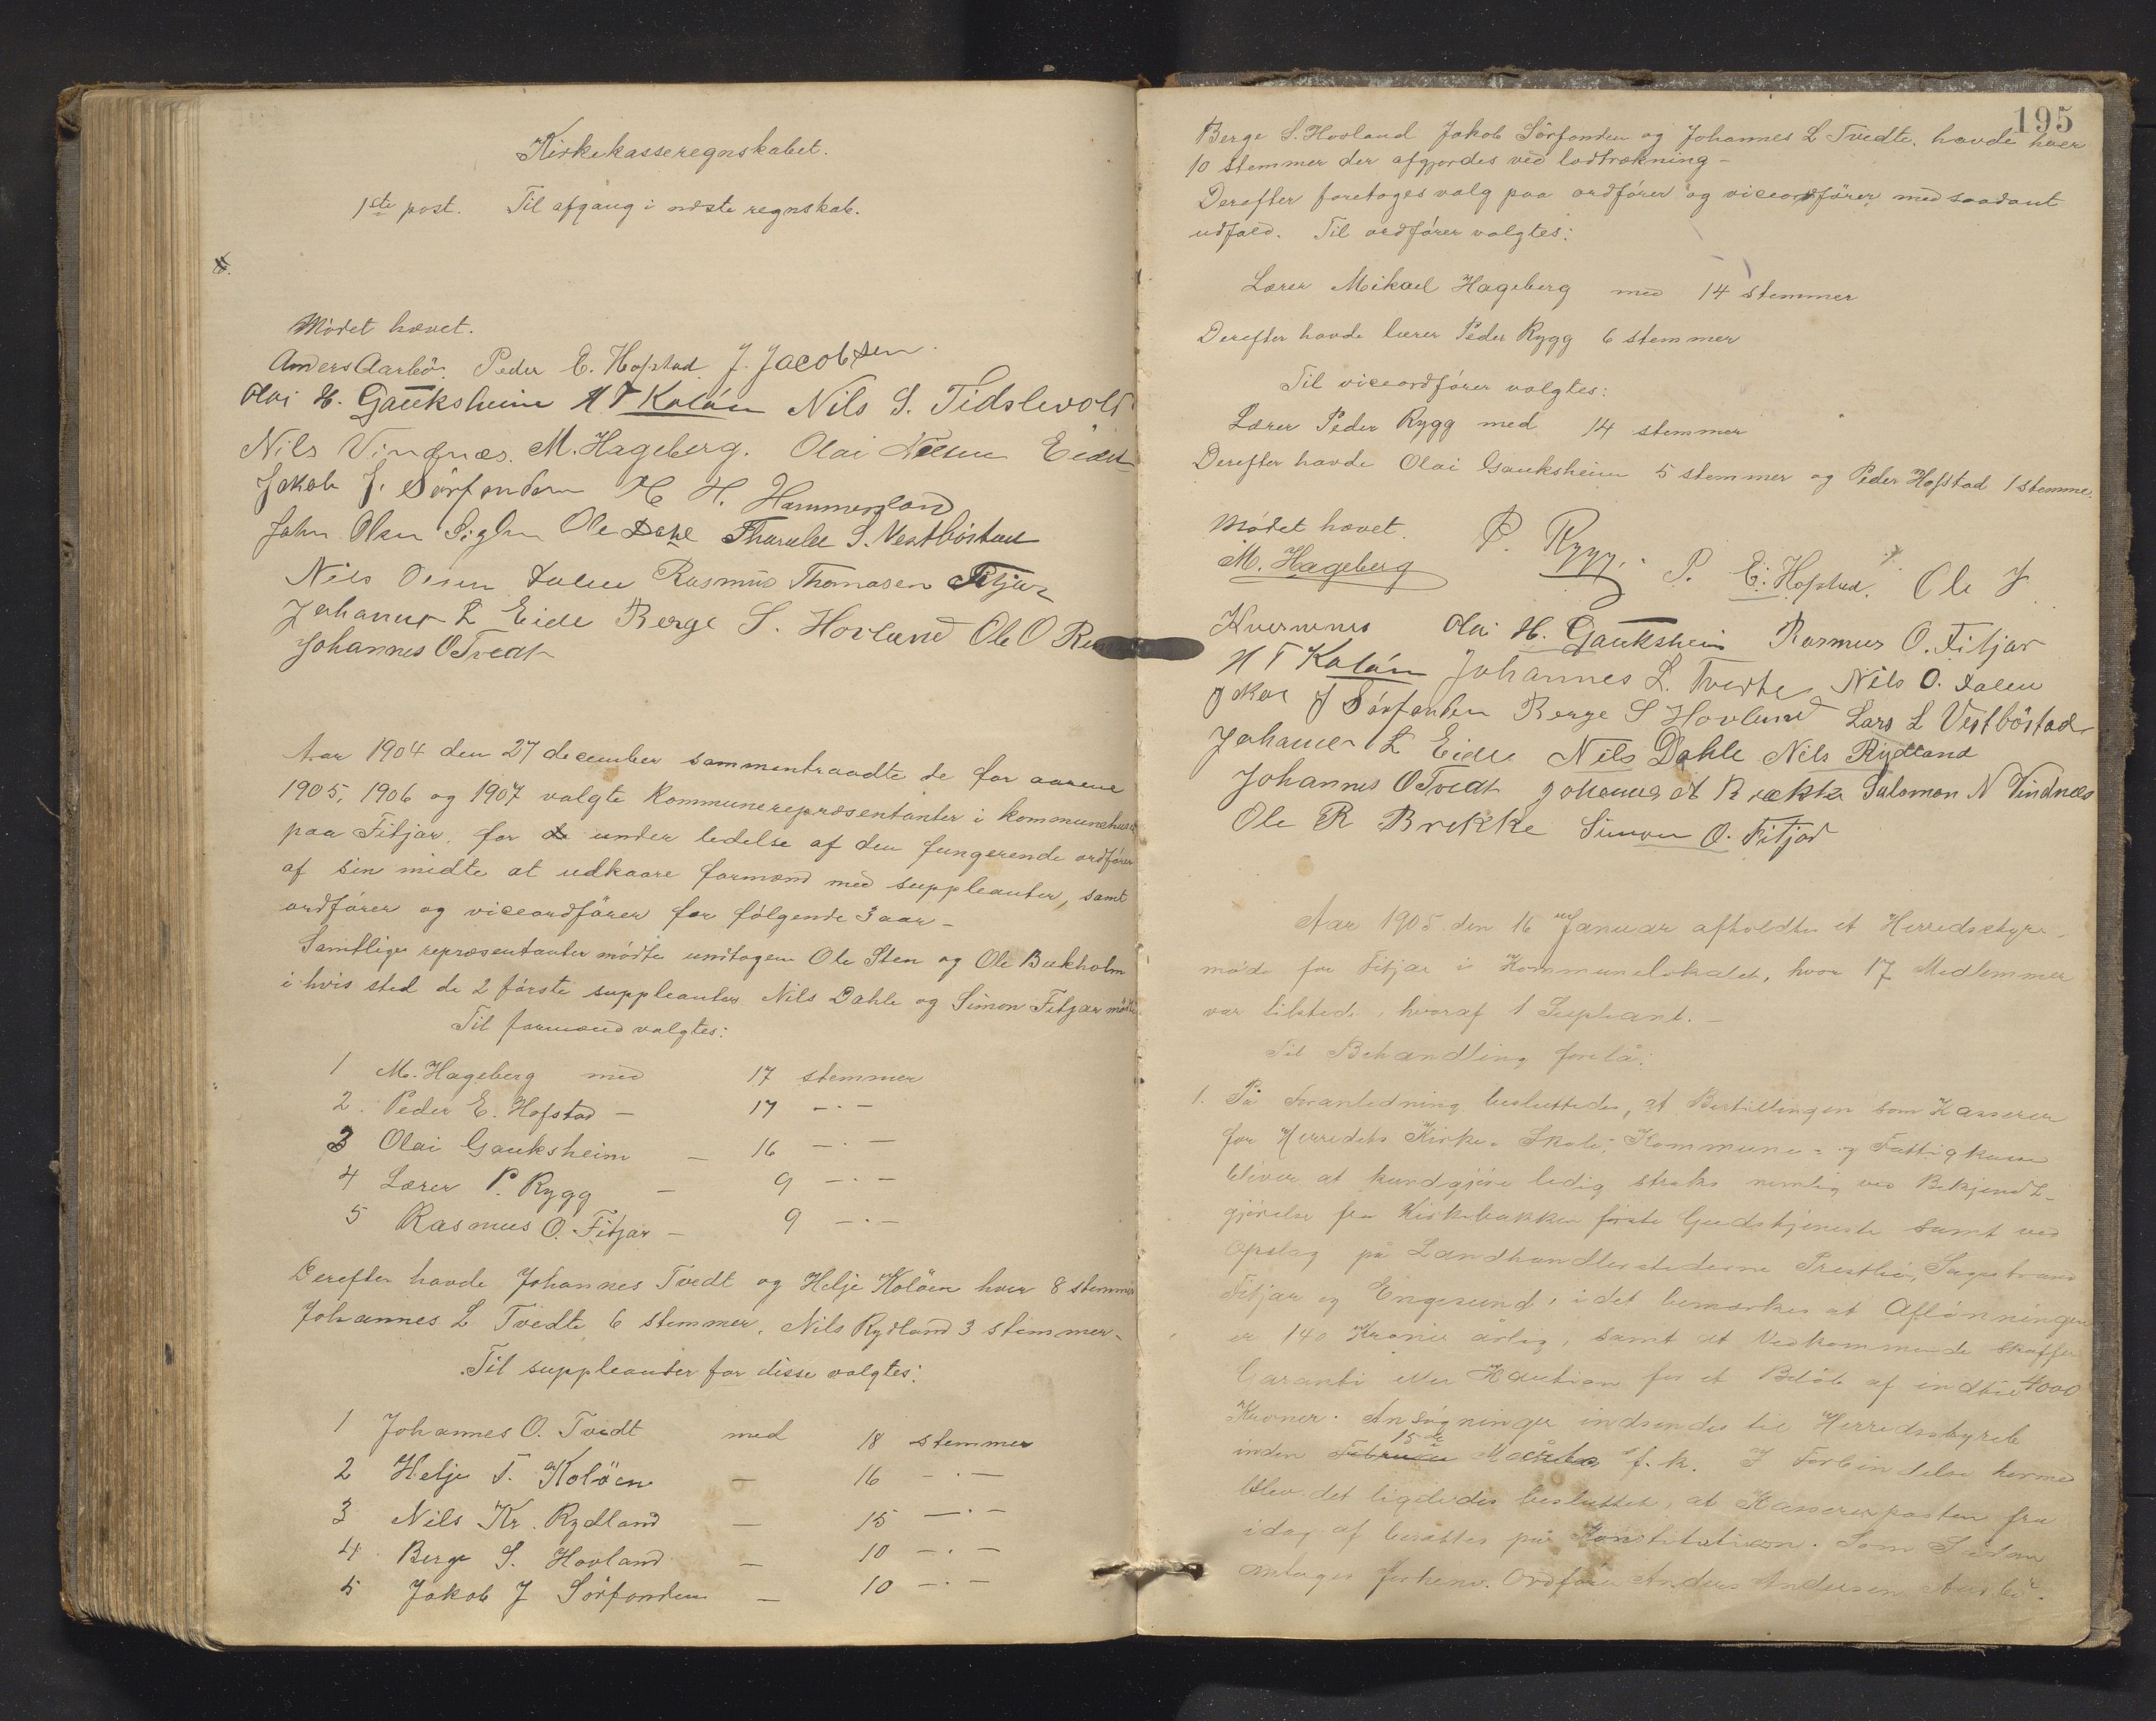 Kirkekasseregnskabet.
1ste post. Til afgang i næste regnskab.
Mødet hævet.
Anders Aarbö. Peder E. Hofstad J. Jacobsen.
Olai H. Gauksheim H T Kolöen Nils S. Tidslevold
Nils Vindnæs. M. Hageberg. Olai Nilsen Eide
Jakob J. Sörfonden H. Hammersland
John Olsen Ole Dahl Thorulv S. Vestböstad
Nils Olsen Dalen Rasmus Thomasen Fitjar
Johannes L Eide Berge S. Hovland Ole O
Johannes O Tvedt
Aar 1904 den 27 december sammentraadte de for aarene
1905, 1906 og 1907 valgte kommunerepræsentanter i kommunehuset
paa Fitjar, for de under ledelse af den fungerende ordfører
af sin midte at udkaare formænd med suppleanter, samt
ordfører og viceordfører for følgende 3 aar –
Samtlige repræsentanter mødte undtagen Ole Sten og Ole Bækholm
i hvis sted de 2 første suppleanter Nils Dahle og Simon Fitjar mødte
Til formænd valgtes:
1 M. Hageberg med 17 stemmer
2. Peder E. Hofstad – 17 –·–
3 Olai Gauksheim – 16 –·–
4 Lærer P. Rygg – 9 –·–
5 Rasmus O. Fitjar – 9 –·–
Derefter havde Johannes Tvedt og Helje Kolöen hver 8 stemmer
Johannes L. Tvedte 6 stemmer, Nils Rydland 3 stemmer –
Til suppleanter for disse valgtes:
1 Johannes O. Tvedt med 18 stemmer
2 Helje T. Kolöen – 16 –·–
3 Nils Kr. Rydland – 15 –·–
4 Berge S. Hovland – 10 –·–
5 Jakob J Sörfonden – 10 –·–
195
Berge S. Hovland Jakob Sörfonden og Johannes L Tvedte. havde hver
10 stemmer der afgjordes ved lodtrækning –
Derefter foretoges valg paa ordfører og viceordfører med saadant
udfald. Til ordfører valgtes:
Lærer Mikael Hageberg med 14 stemmer
Derefter havde lærer Peder Rygg 6 stemmer
Til viceordfører valgtes:
Lærer Peder Rygg med 14 stemmer
Derefter havde Olai Gauksheim 5 stemmer og Peder Hofstad 1 stemme.
Mødet hævet.
M. Hageberg P. Rygg. P. E. Hofstad. Ole J
Kvernenes Olai H. Gauksheim Rasmus O. Fitjar
H T Kolöen Johannes L. Tvedte Nils O. Dalen
Jakob J Sörfonden Berge S Hovland Lars L Vestböstad
Johannes L Eide Nils Dahle Nils Rydland
Johannes O Tvedt Johannes Brække Salomon N Vindnæs
Ole R Brekke Simon O. Fitjar
Aar 1905 den 16 Januar afholdtes et Herredsstyre-
møde for Fitjar i Kommunelokalet, hvor 17 Medlemmer
var tilstede, hvoraf 1 Supleant. –
Til Behandling forelå:
1. På Foranledning besluttedes, at Bestillingen som Kasserer
for Herredets Kirke- Skole- Kommune- og Fattigkasse
bliver at kundgjøre ledig straks nemlig ved Bekjendt-
gjørelse fra Kirkebakken første Gudstjeneste samt ved
Opslag på Landhandlerstederne Prestbö, Sagestrand
Fitjar og Engesund, idet bemærkes at Aflønningen
er 140 Kroner årlig, samt at Vedkommende skaffer
Garanti eller Kaution for et Beløb af indtil 4000
Kroner. Ansøgninger indsendes til Herredsstyret
inden 15de Marts f. k. I Forbindelse hermed
blev det ligeledes besluttet, at Kassererposten fra
idag af besættes på Konstitution. Som Sådan
antages forhenv. Ordfører Anders Andersen Aarbö.